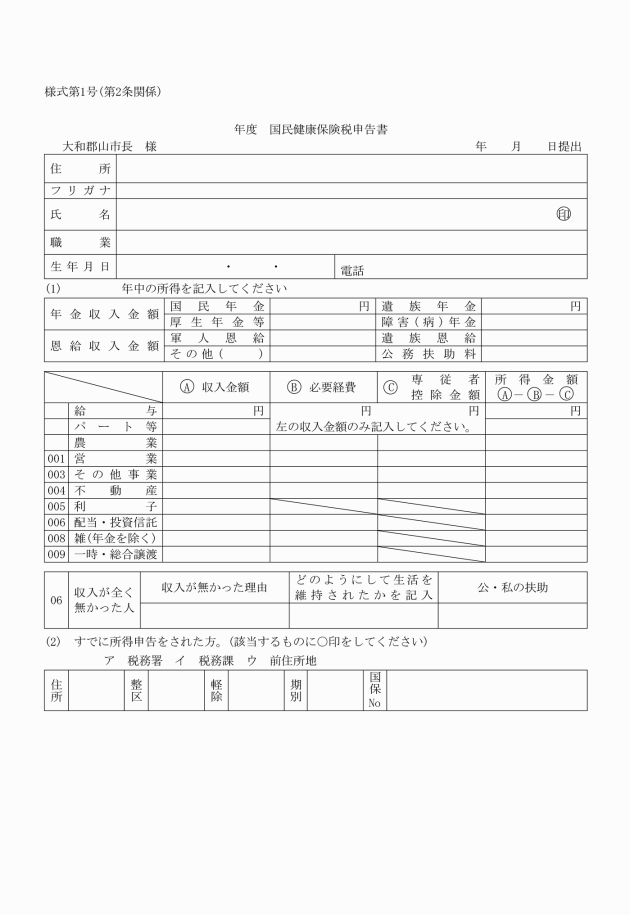 様式第1号(第2条関係)
年度　国民健康保険税申告書
大和郡山市長　様　　　年　　月　　日提出
住所
フリガナ
氏名　㊞
職業
生年月日　・　・　電話
(1)　　　年中の所得を記入してください
年金収入金額　国民年金　円　遺族年金　円
厚生年金等　障害(病)年金
恩給収入金額　軍人恩給　遺族恩給
その他(　　)　公務扶助料
Ⓐ 収入金額　Ⓑ 必要経費　Ⓒ 専従者控除金額　所得金額 Ⓐ－Ⓑ－Ⓒ
給与　円　円　円　円
パート等　左の収入金額のみ記入してください。
農業
001 営業
003 その他事業
004 不動産
005 利子
006 配当・投資信託
008 雑(年金を除く)
009 一時・総合譲渡
06　収入が全く無かった人　収入が無かった理由　どのようにして生活を維持されたかを記入　公・私の扶助
(2)　すでに所得申告をされた方。(該当するものに○印をしてください)
ア　税務署　イ　税務課　ウ　前住所地
住所　整区　軽除　期別　国保No